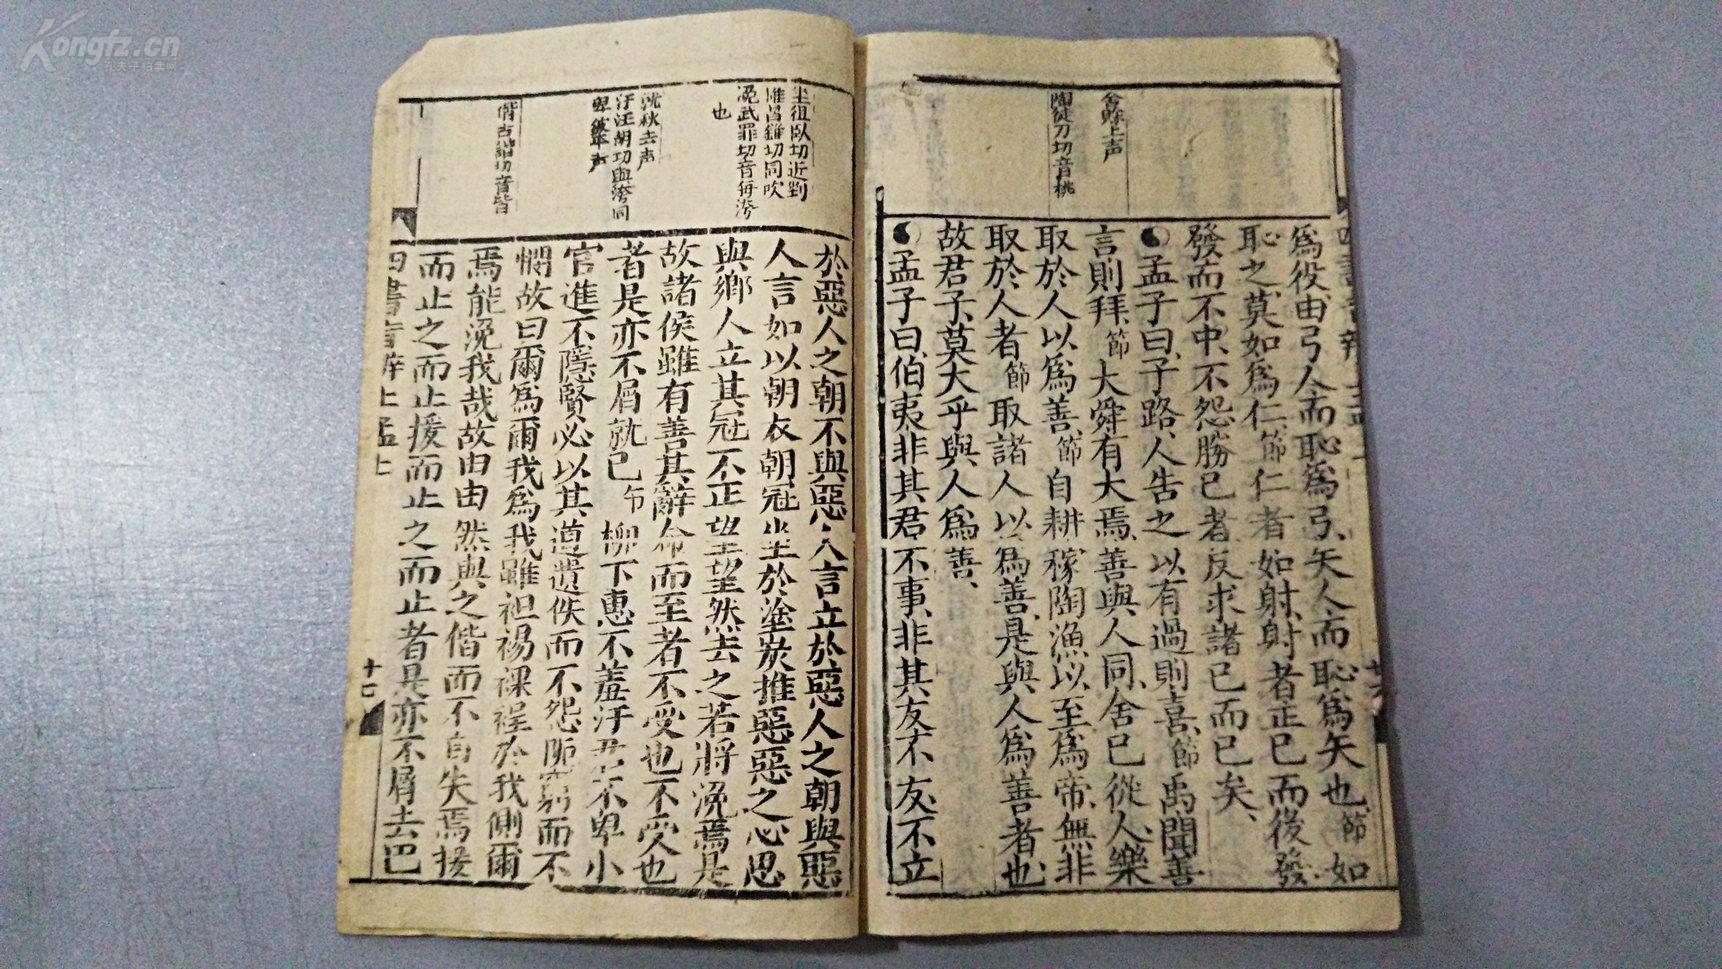 Kongfz.cn
舍賒上声
陶徒刀切音桃
爲役由弓人而恥爲弓矢人而恥爲矢也節如
恥之莫如爲仁節仁者如射射者正己而後發
發而不中不怨勝己者反求諸己而已矣
孟子曰子路人告之以有過則喜節禹聞善
言則拜節大舜有大焉善與人同舍己從人樂
取於人以爲善節自耕稼陶漁以至爲帝無非
取於人者節取諸人以爲善是與人爲善者也
故君子莫大乎與人爲善
孟子曰伯夷非其君不事非其友不友不立
坐徂臥切近剉
推昌錐切同吹
浼武罪切音每
也
就秋去声
汙汪胡切與洿同
卑
偕古諧切音皆
於惡人之朝不與惡人言立於惡人之朝與惡
人言如以朝衣朝冠坐於塗炭推惡惡之心思
與鄉人立其冠不正望望然去之若將浼焉是
故諸侯雖有善其辭命而至者不受也不受也
者是亦不屑就已節柳下惠不羞汙君不卑小
官進不隱賢必以其道遺佚而不怨阨窮而不
憫故曰爾爲爾我爲我雖袒裼裸裎於我側爾
焉能浼我哉故由由然與之偕而不自失焉援
而止之而止援而止之而止者是亦不屑去已
四書音辨上孟上
十七